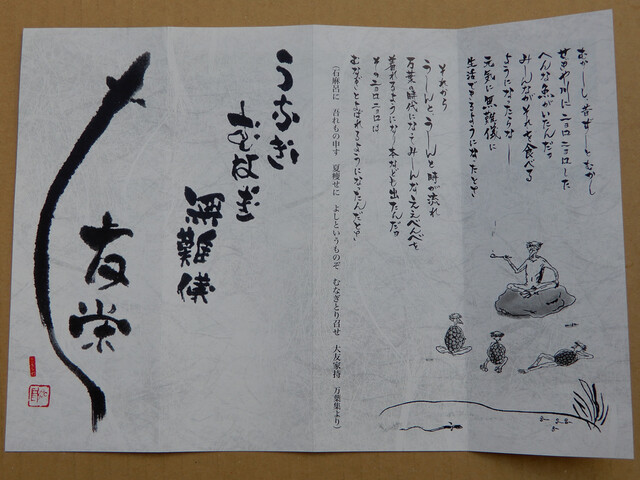 むかーし、昔ずーとむかし
せせや川にニョロニョロした
へんな魚がいたんだっ
みーんながそれを食べてる
ようになったらなー
元気に無難儀に
生活できるようになったとさ
それから
うーんと、うーんと時が流れ
万葉の時代になってみーんなええべべを
着れるようになり本なども出たんだっ
そのニョロニョロは
むなぎとよばれるようになったんだとさ
(石麻呂に 吾れもの申す 夏痩せに よしというものぞ むなぎとり召せ 大友家持 万葉集より)
うなぎ
むなぎ
無難儀
友栄